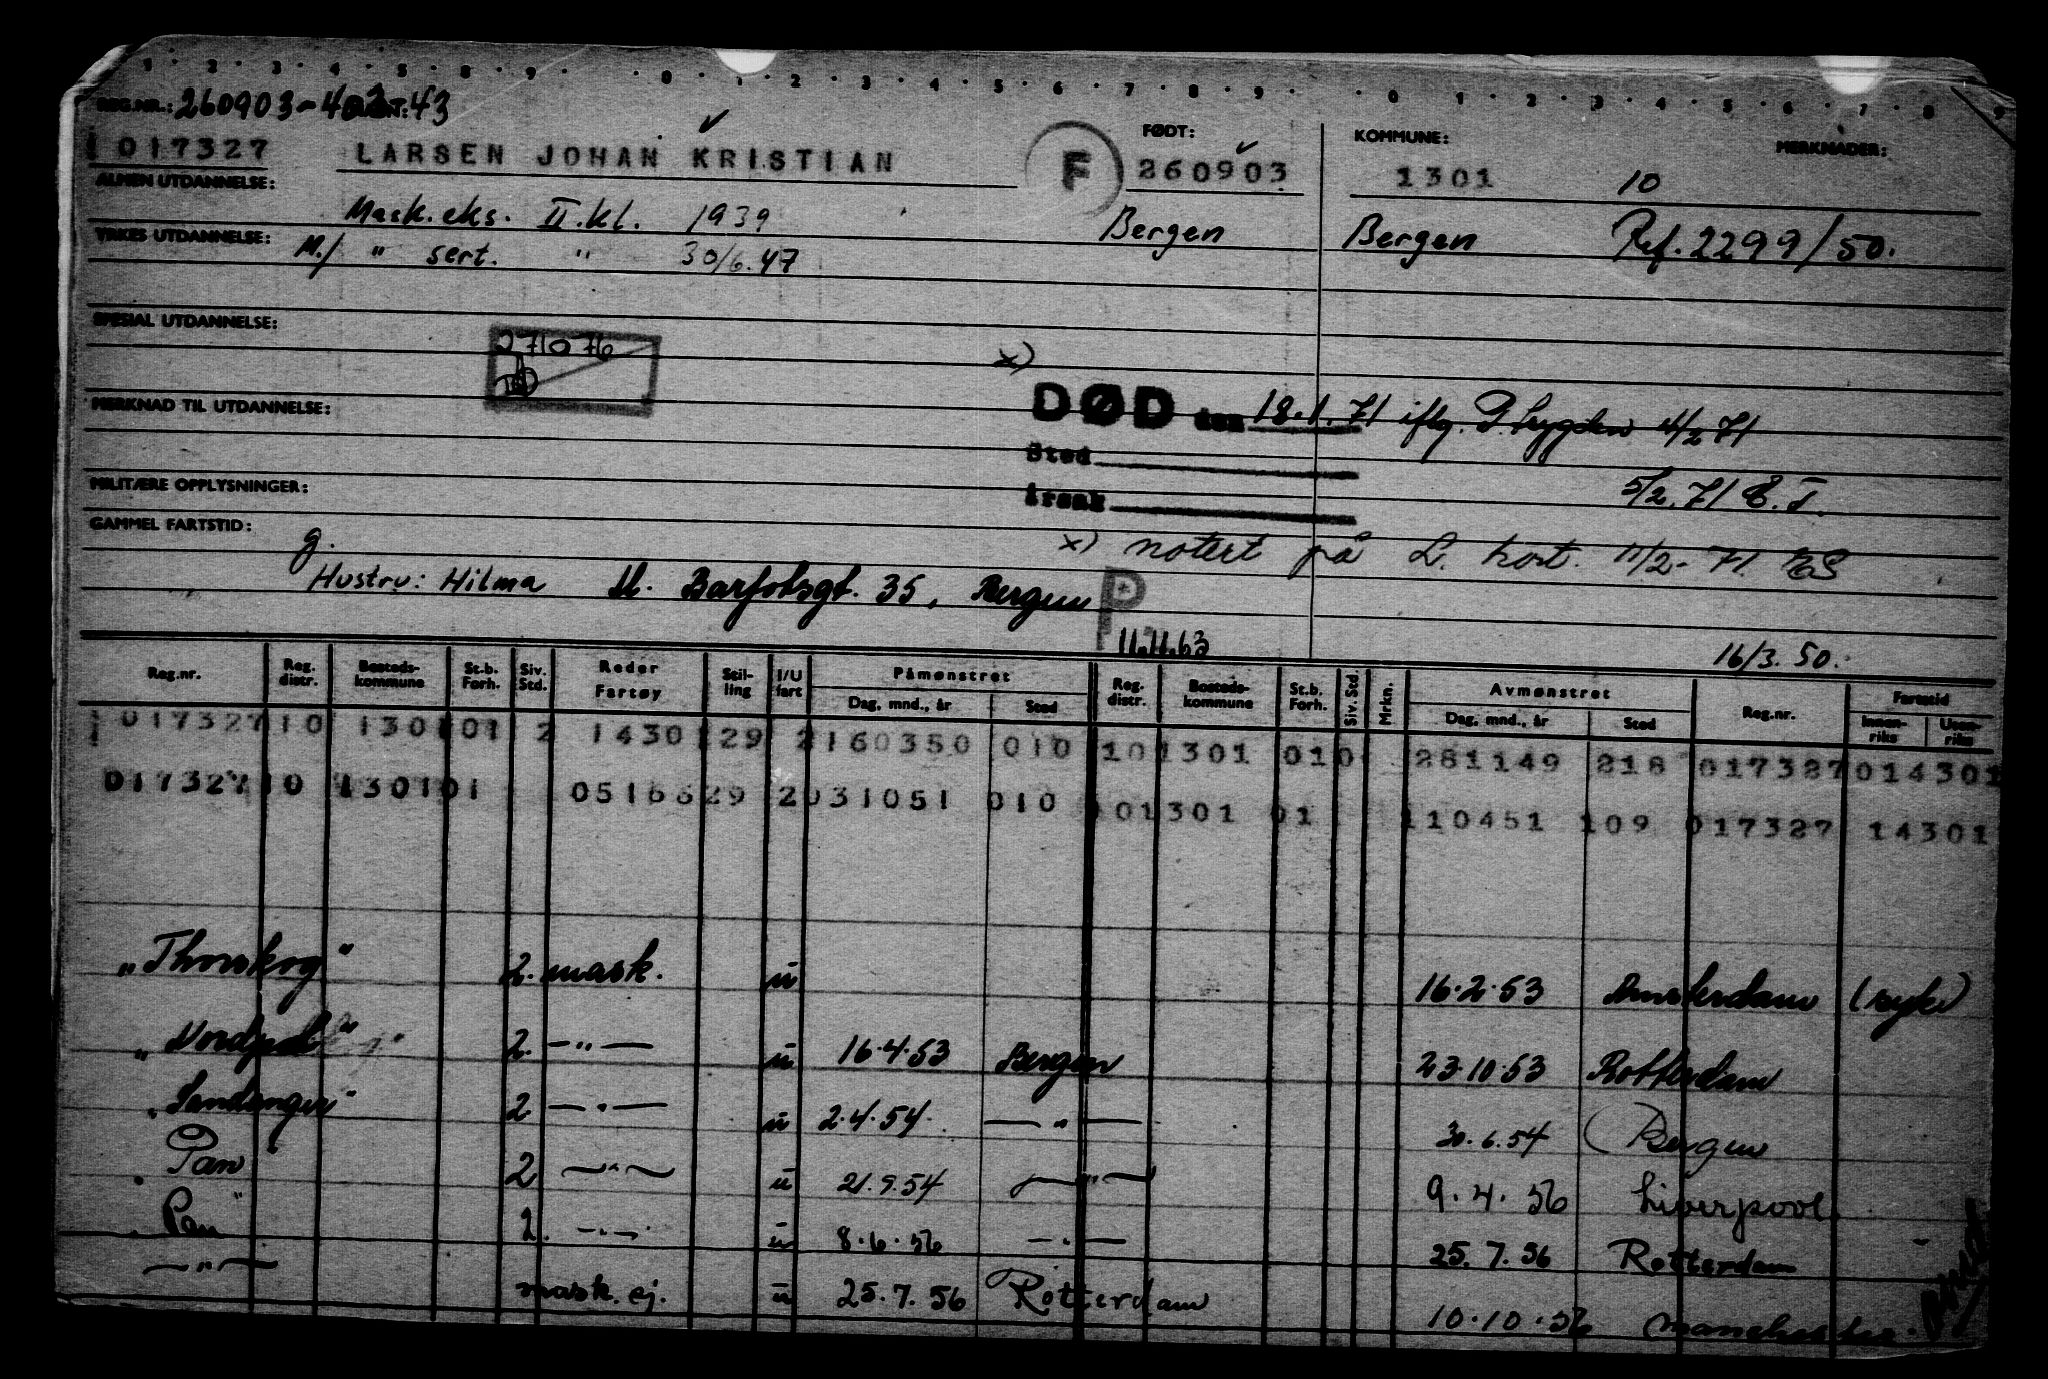 REG.NR.: 260903-40 ANT: 43
017327 LARSEN JOHAN KRISTIAN F FØDT: 260903 KOMMUNE: 1301 10 MERKNADER:
ALMEN UTDANNELSE:
Mask.eks. II.kl. 1939 Bergen Bergen Ref. 2299/50.
YRKES UTDANNELSE: M./ " sert. " 30/6.47
SPESIAL UTDANNELSE:
271076
x)
DØD den 18.1.71 iflg. trygden 4/2 71
MERKNAD TIL UTDANNELSE:
Sted
5/2.71
MILITÆRE OPPLYSNINGER:
Årsak
GAMMEL FARTSTID: g.
x) notert på L. kort. 11/2-71.
Hustru: Hilma M. Barfotsgt. 35, Bergen P
11.11.63 16/3.50.
Reg.nr. Reg. distr. Bosteds-kommune St.b. Forh. Siv. Std. Reder Fartøy Stil-ling I/U fart Påmønstret Dag, mnd., år Sted Reg. distr. Bosteds-kommune St.b. Forh. Siv. Std. Mrkn. Avmønstret Dag, mnd., år Sted Reg.nr. Fartstid Innen-riks Uten-riks
017327 10 1301 01 2 1430 29 2 160350 010 10 1301 01 0 281149 218 017327 014301
017327 10 1301 01 0516629 2 031051 010 101301 01 110451 109 017327 14301
"Thorskog" 2. mask. u 16.2.53 Amsterdam (syke)
2. -"- u 16.4.53 Bergen 23.10.53 Rotterdam
"Sandanger" 2 -"- u 2.4.54 -"- 30.6.54 Bergen
"Pan" 2 -"- u 21.9.54 -"- 9.4.56 Liverpool
"Pan" 2. -"- u 8.6.56 -"- 25.7.56 Rotterdam
-"- mask. ej. u 25.7.56 Rotterdam 10.10.56 Manchester.